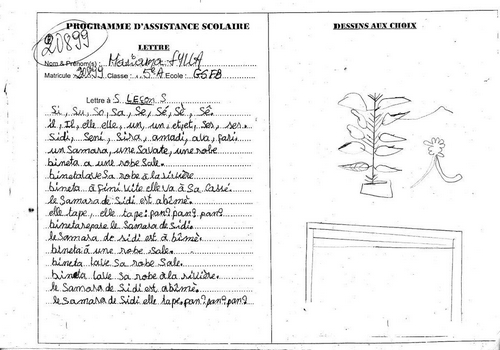 PROGRAMME D'ASSISTANCE SCOLAIRE
DESSINS AUX CHOIX
20899
LETTRE
Nom & Prénom(s) : Mariama SYLLA
Matricule : 20899 Classe : 5e A Ecole : GSFB
Lettre à S Leçon S
Si, Su, So, Sa, Se, Sé, Sè, Sê.
il, Il, elle elle, un, un et, et, Ses, ses.
Sidi, Seni, Sira, amadi, ava, fari.
un Samara, une Savate, une robe
bineta a une robe Sale.
bineta lave Sa robe à la rivière
bineta à fini vite elle va à Sa Case.
le Samara de Sidi est abîmé.
elle tape, elle tape: pan? pan? pan?
bineta repase le Samara de Sidi.
le Samara de sidi est à bîmè.
bineta à une robe Sale.
bineta lave Sa robe Sale.
bineta lave Sa robe à la rivière.
le Samara de Sidi est abîmè.
le Samara de Sidi elle tape, pan? pan? pan?